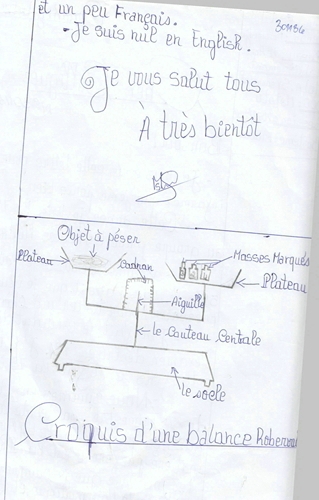 et un peu Français.
- Je suis nul en English.
Je vous salut tous
À très bientôt
Objet à péser
Plateau
Cadran
Masses Marqués
Plateau
Aiguille
le Couteau Centrale
le socle
Croquis d'une balance